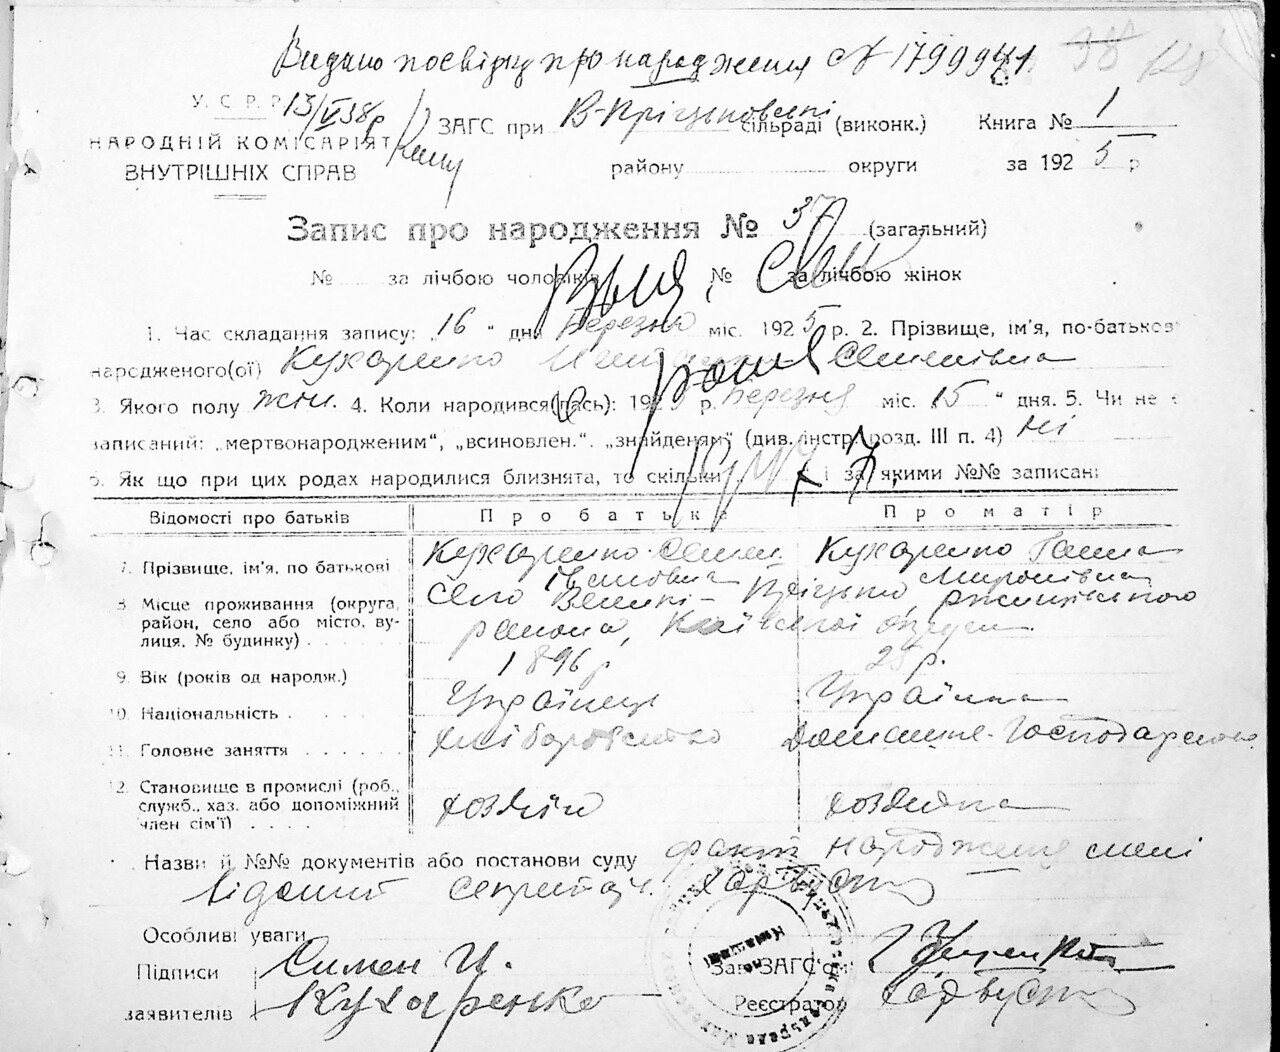 Видано посвідку про народження № 1799971 38 128
У. С. Р. Р. 13/V 38 р
ЗАГС при В-Пріцьковські сільраді (виконк.) Книга № 1
НАРОДНІЙ КОМІСАРІЯТ
ВНУТРІШНІХ СПРАВ
району округи за 1925 р
Запис про народження № 37 (загальний)
№ за лічбою чоловіків № за лічбою жінок
1. Час складання запису: „16 “ дня Березня міс. 1925 р. 2. Прізвище, ім'я, по-батькові
народженого(ої) Кухаренко Семенівна
3. Якого полу жін. 4. Коли народився(лась): 1925 р. Березня міс. „15 “ дня. 5. Чи не є
записаний: „мертвонародженим“, „всиновлен.“. „знайденям“ (див. інстр. розд. III п. 4) Ні
6. Як що при цих родах народилися близнята, то скільки і за якими №№ записані
Відомості про батьків Про батька Про матір
7. Прізвище, ім'я, по батькові Кухаренко Семен Іванович Кухаренко Ганна Миронівна
8 Місце проживання (округа, район, село або місто, вулиця, № будинку) село Великі-Пріцьки, Ржищівського
района, Київської округи
9. Вік (років од народж.) 1896 р 25 р.
10. Національність Українець Українка
11. Головне заняття хліборобство Домашнє-Господарство
12. Становище в промислі (роб., служб., хаз. або допоміжний член сім'ї) хозяїн хозяйка
Назви й №№ документів або постанови суду факт народження мені
відомий секретар
Особливі уваги
Підписи заявителів Симен И. Кухаренко
Зав. ЗАГС'ом
Реєстратор